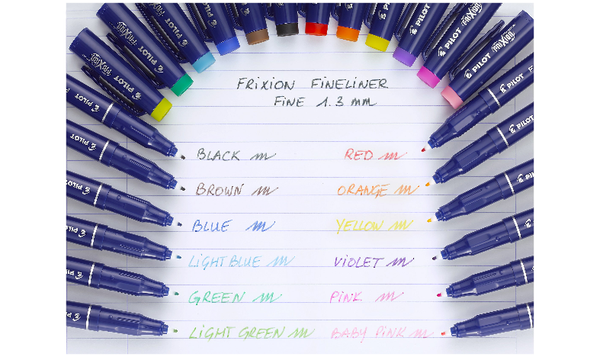 PILOT FriXion
PILOT FriXion
PILOT FriXion
PILOT FriXion
FRIXION FINELINER
FINE 1.3 mm
PILOT
PILOT
BLACK RED
PILOT
PILOT
BROWN ORANGE
PILOT
PILOT
BLUE YELLOW
PILOT
PILOT
LIGHT BLUE VIOLET
PILOT
PILOT
GREEN PINK
PILOT
PILOT
LIGHT GREEN BABY PINK